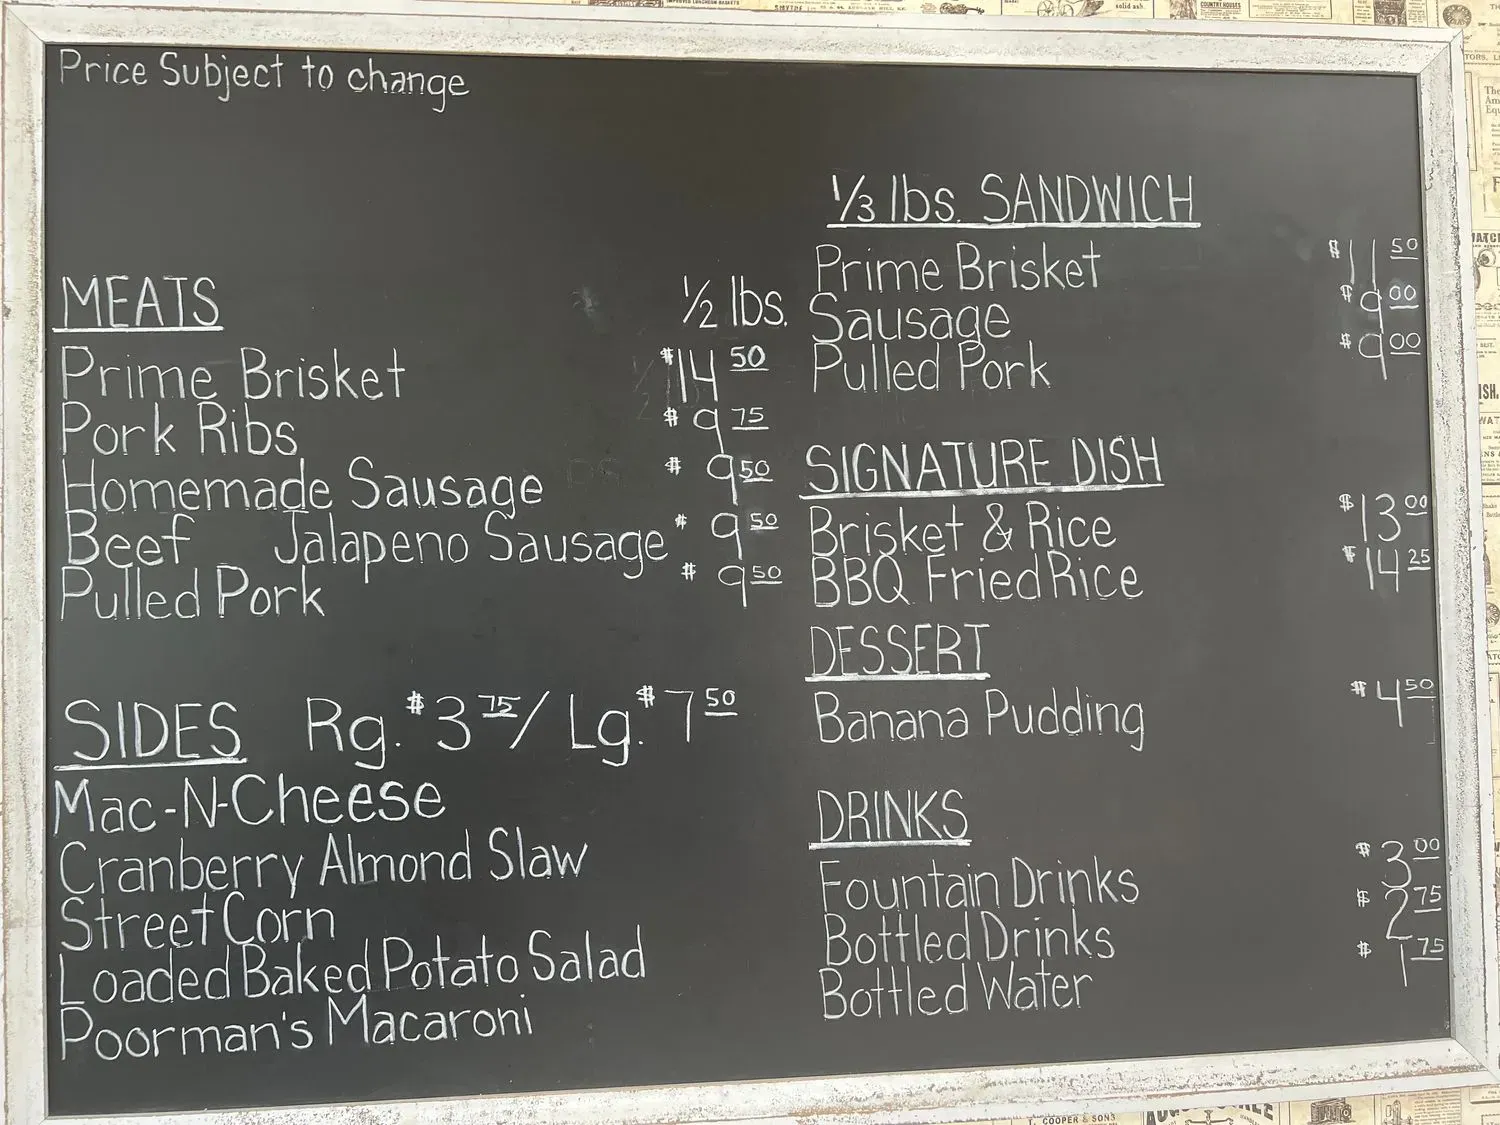 Price Subject to change
MEATS 1/2 lbs.
Prime Brisket $14 50
Pork Ribs $9 75
Homemade Sausage $9 50
Beef Jalapeno Sausage $9 50
Pulled Pork $9 50
SIDES Rg. $3 75/ Lg. $7 50
Mac-N-Cheese
Cranberry Almond Slaw
Street Corn
Loaded Baked Potato Salad
Poorman's Macaroni
1/3 lbs. SANDWICH
Prime Brisket $11 50
Sausage $9 00
Pulled Pork $9 00
SIGNATURE DISH
Brisket & Rice $13 00
BBQ Fried Rice $14 25
DESSERT
Banana Pudding $4 50
DRINKS
Fountain Drinks $3 00
Bottled Drinks $2 75
Bottled Water $1 75
T. COOPER & SONS